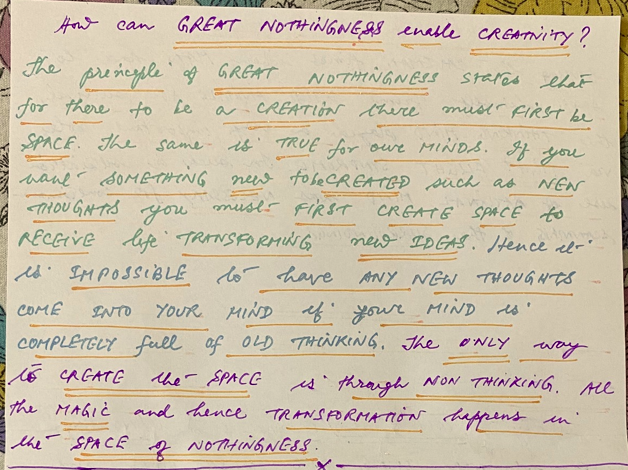 How can GREAT NOTHINGNESS enable CREATIVITY?
The principle of GREAT NOTHINGNESS states that
for there to be a CREATION there must FIRST be
SPACE. The same is TRUE for our MINDS. If you
want SOMETHING new to be CREATED such as NEW
THOUGHTS you must FIRST CREATE SPACE to
RECEIVE life TRANSFORMING new IDEAS. Hence it
is IMPOSSIBLE to have ANY NEW THOUGHTS
COME INTO YOUR MIND if your MIND is
COMPLETELY full of OLD THINKING. The ONLY way
to CREATE the SPACE is through NON THINKING. All
the MAGIC and hence TRANSFORMATION happens in
the SPACE of NOTHINGNESS.